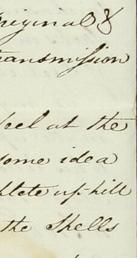 original &
transmission
feel at the
some idea
up-hill
the Shells